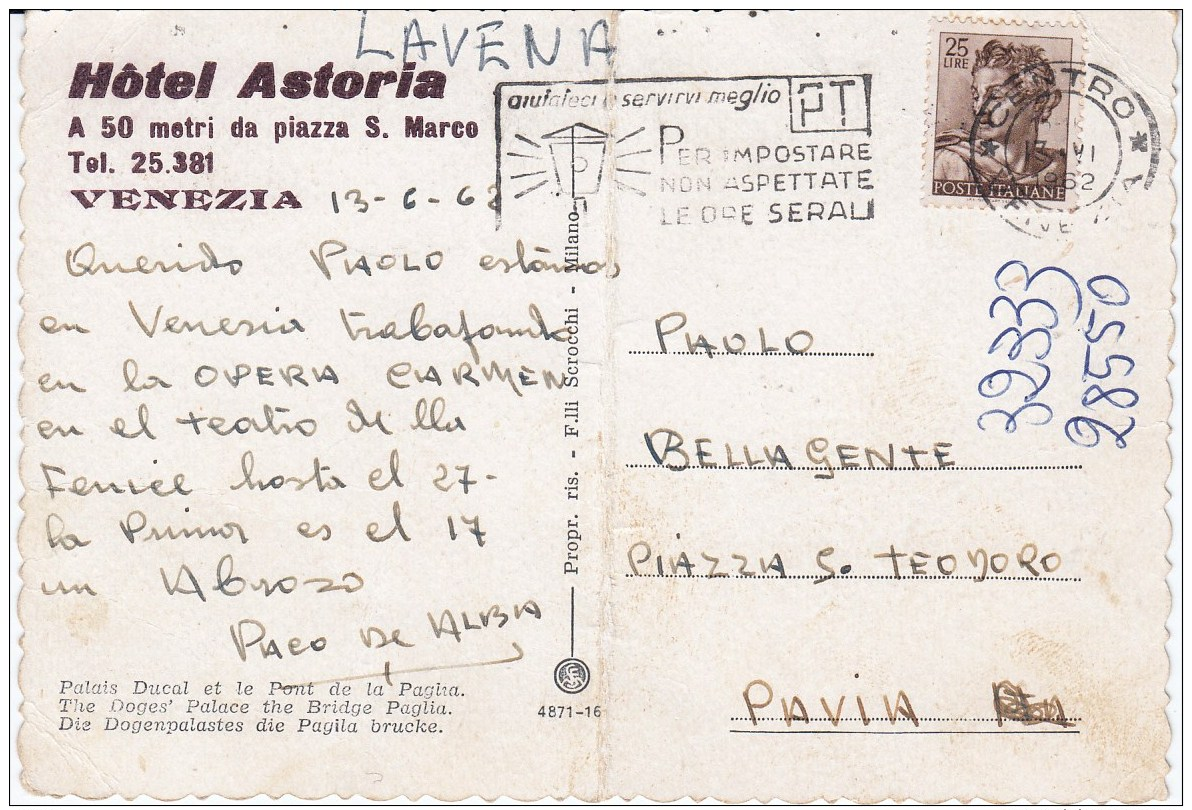 LAVENA
Hôtel Astoria
A 50 metri da piazza S. Marco
Tel. 25.381
VENEZIA 13-6-62
Querido PAOLO estamos
en Venezia trabajando
en la OPERA CARMEN
en el teatro de lla
Fenice hasta el 27-
la Prima es el 17
un Abrazo
PACO DE ALBA
Palais Ducal et le Pont de la Paglia.
The Doges' Palace the Bridge Paglia.
Die Dogenpalastes die Paglia brucke.
4871-16
Propr. ris. - F.lli Scrocchi - Milano
aiutateci a servirvi meglio
PT
PER IMPOSTARE
NON ASPETTATE
LE ORE SERALI
25
LIRE
POSTE ITALIANE
CENTRO
1962
32333
28550
PAOLO
BELLAGENTE
PIAZZA S. TEODORO
PAVIA